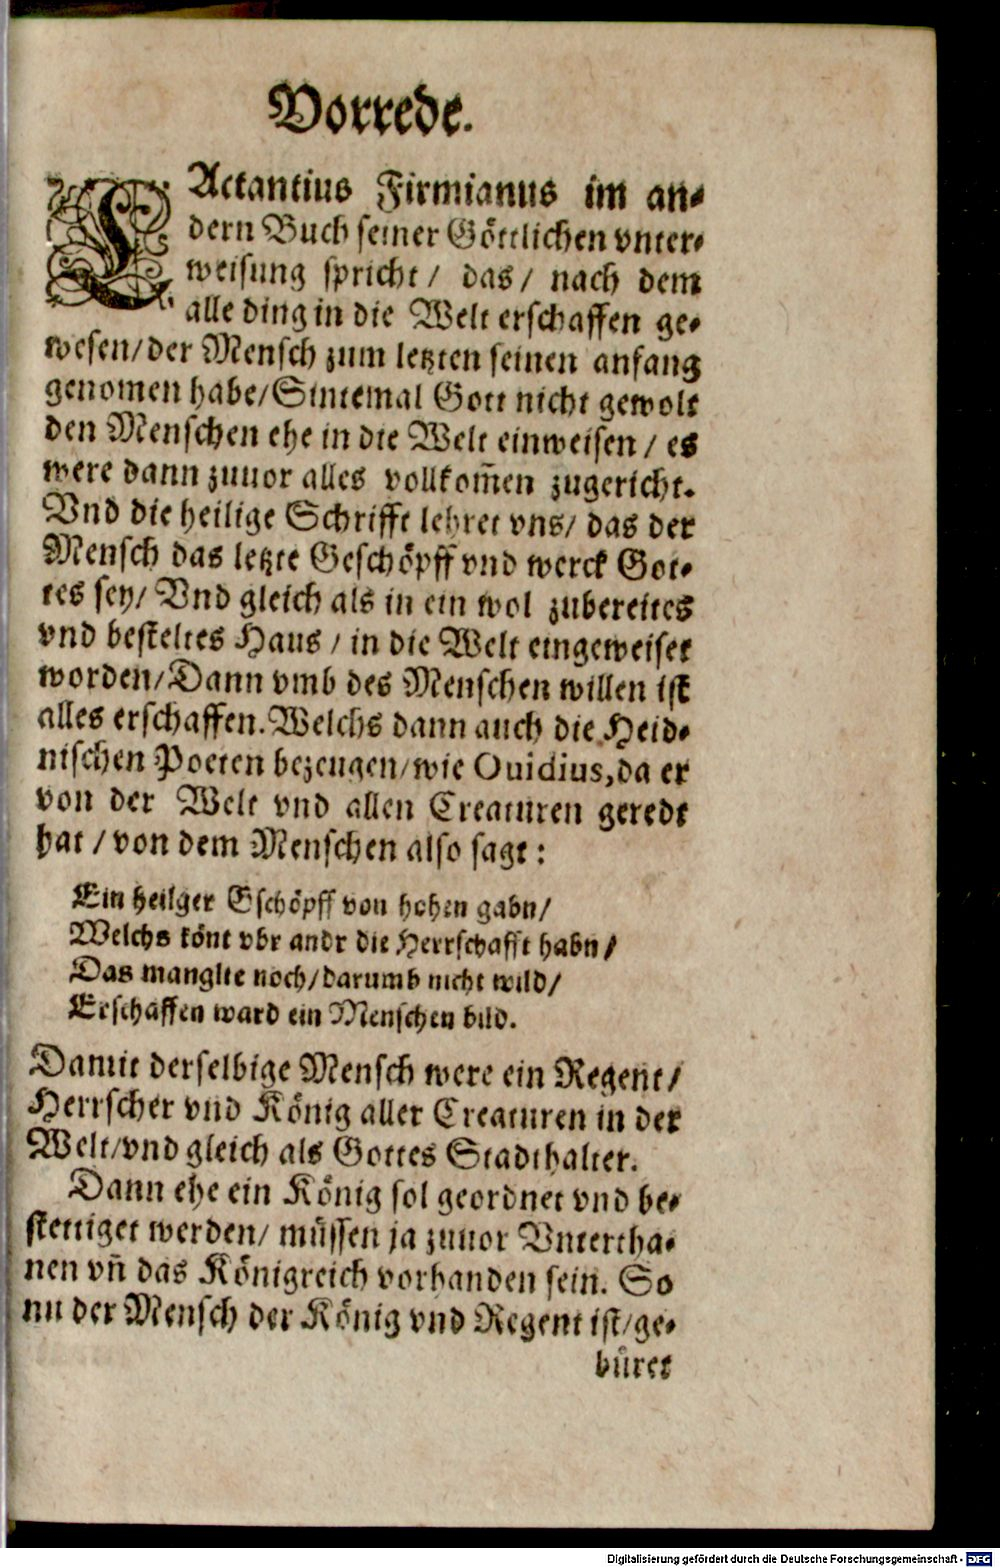 Vorrede.
LActantius Firmianus im an⸗
dern Buch seiner Göttlichen vnter⸗
weisung spricht / das / nach dem
alle ding in die Welt erschaffen ge⸗
wesen / der Mensch zum letzten seinen anfang
genomen habe / Sintemal Gott nicht gewolt
den Menschen ehe in die Welt einweisen / es
were dann zuuor alles vollkom̃en zugericht.
Vnd die heilige Schrifft lehret vns / das der
Mensch das letzte Geschöpff vnd werck Got⸗
tes sey / Vnd gleich als in ein wol zubereites
vnd besteltes Haus / in die Welt eingeweiset
worden / Dann vmb des Menschen willen ist
alles erschaffen. Welchs dann auch die Heid⸗
nischen Poeten bezeugen / wie Ouidius, da er
von der Welt vnd allen Creaturen geredt
hat / von dem Menschen also sagt :
Ein heilger Gschöpff von hohen gabn /
Welchs könt vbr andr die Herrschafft habn /
Das manglte noch / darumb nicht wild /
Erschaffen ward ein Menschen bild.
Damit derselbige Mensch were ein Regent /
Herrscher vnd König aller Creaturen in der
Welt / vnd gleich als Gottes Stadthalter.
Dann ehe ein König sol geordnet vnd be⸗
stettiget werden / müssen ja zuuor Vntertha⸗
nen vñ das Königreich vorhanden sein. So
nu der Mensch der König vnd Regent ist / ge⸗
büret
Digitalisierung gefördert durch die Deutsche Forschungsgemeinschaft - DFG